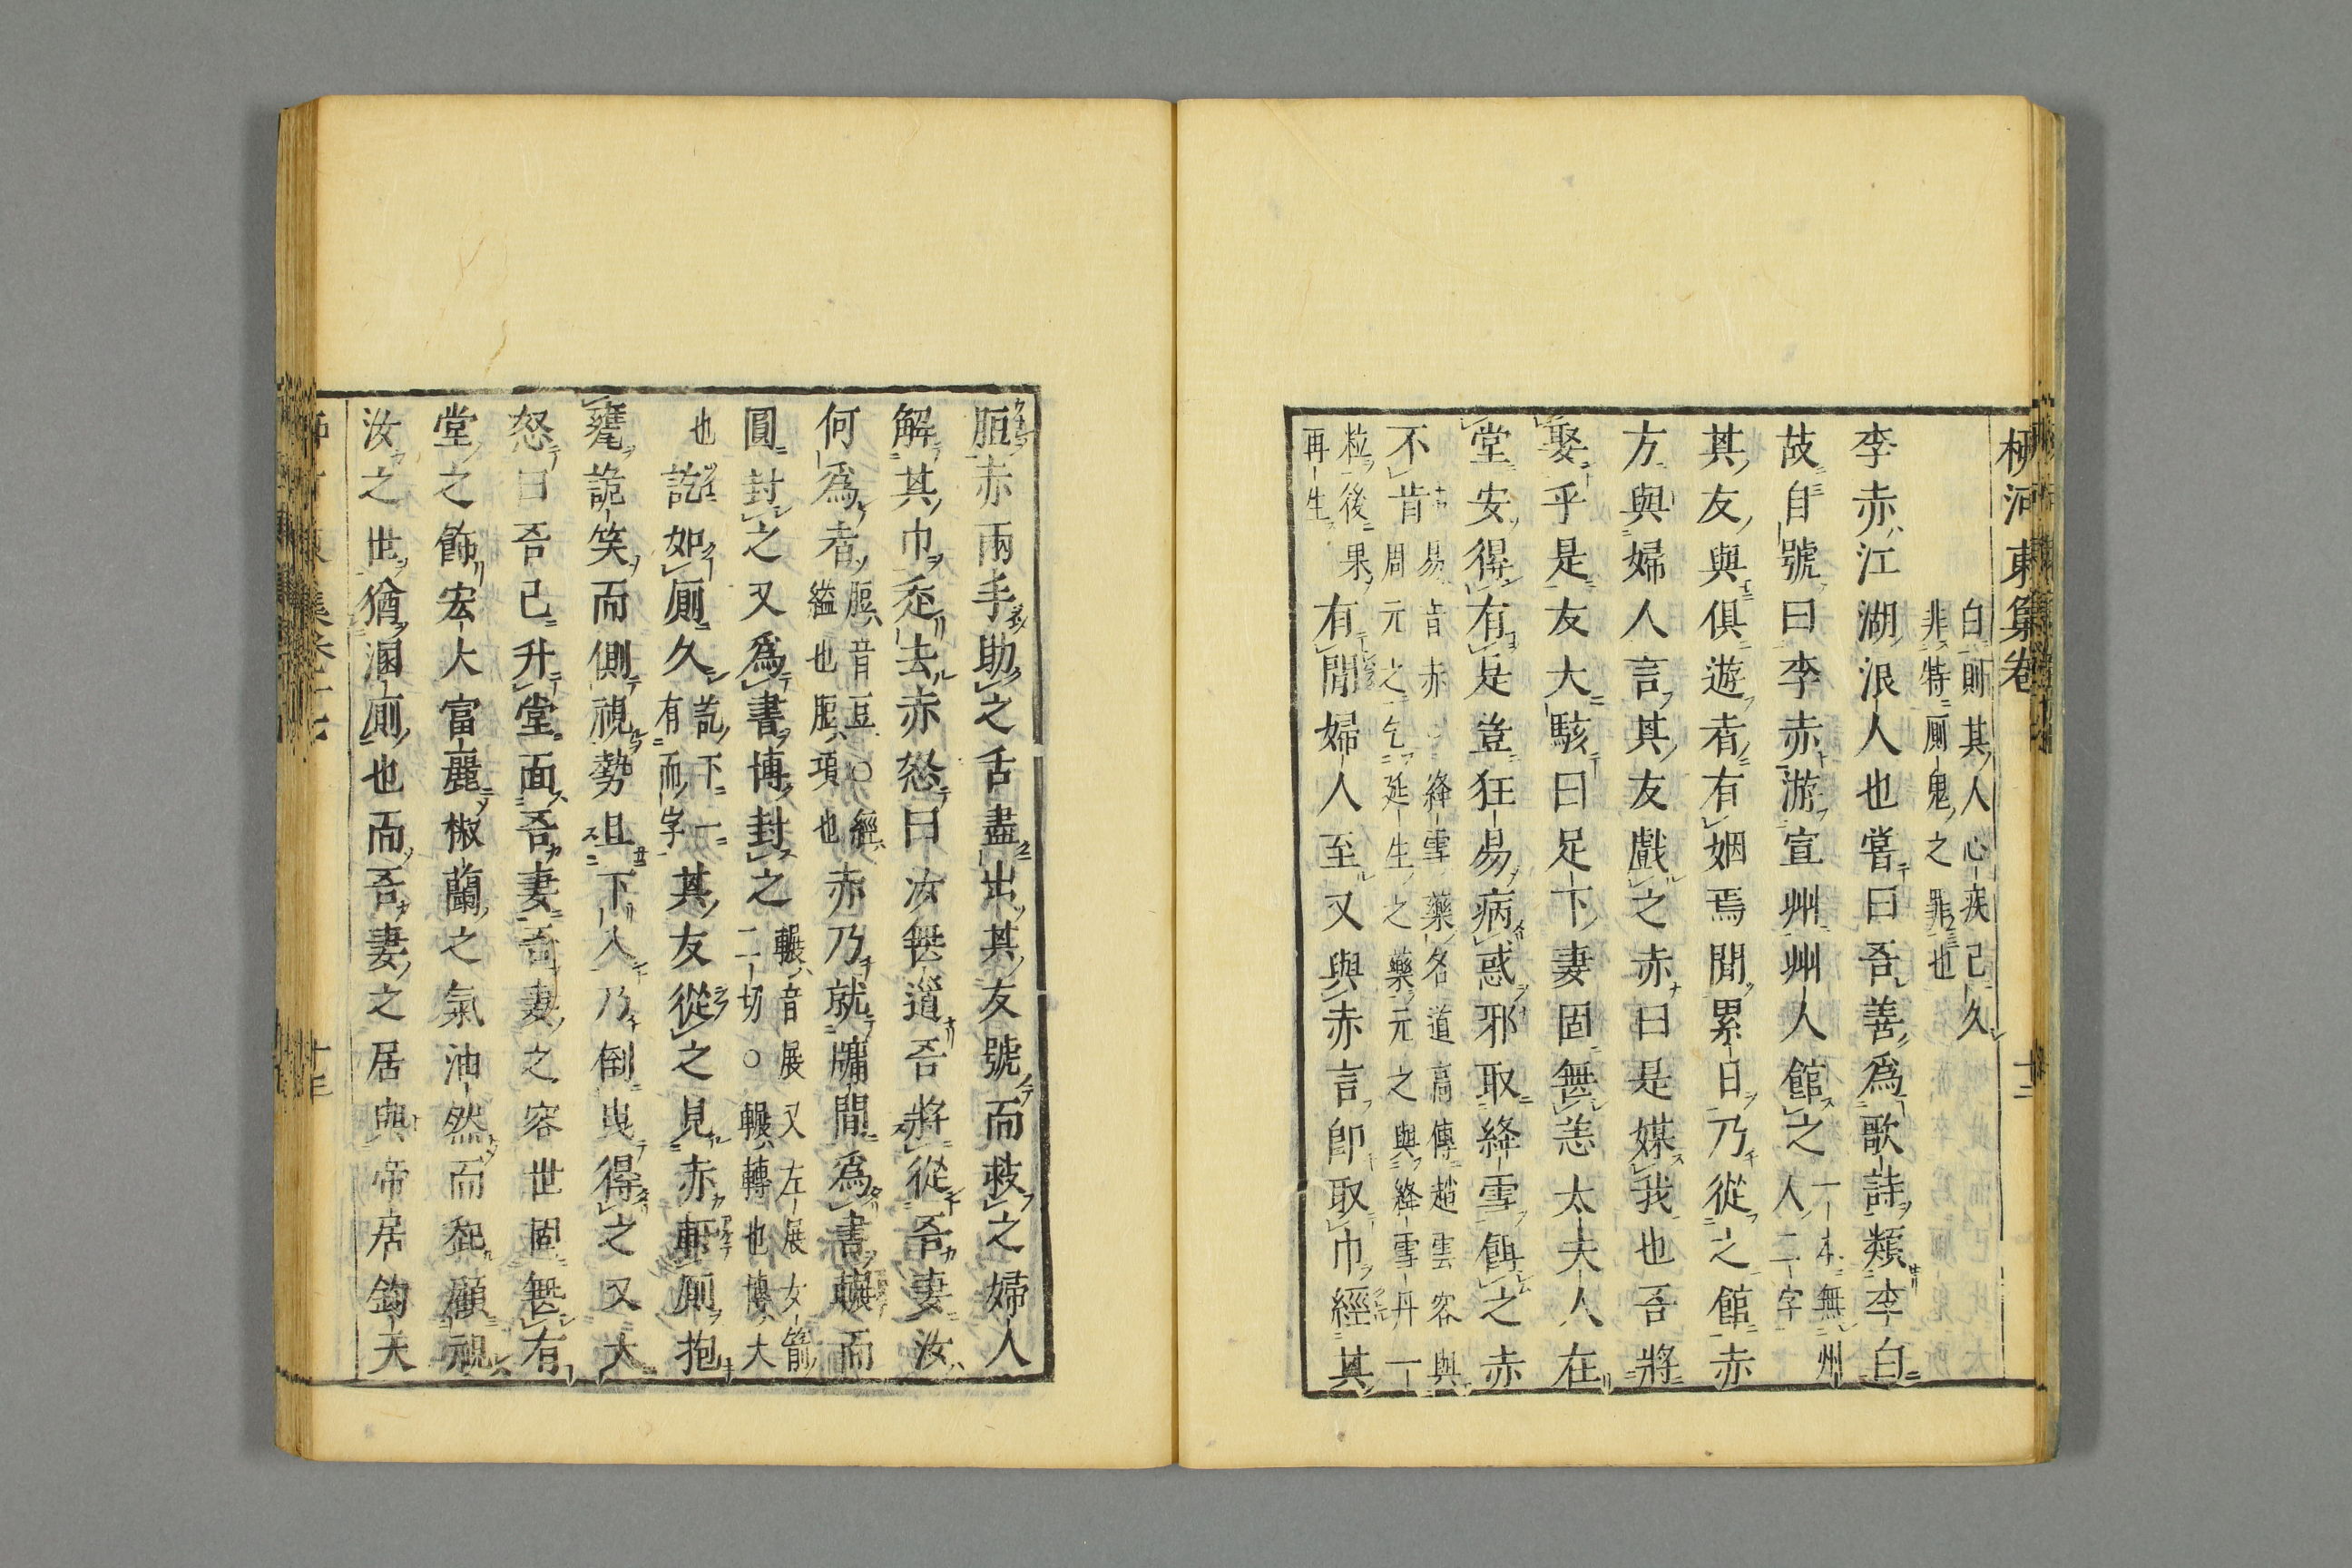 柳河東集卷 十二
白則其人心疾已久
非特厠鬼之罪也
李赤江湖浪人也嘗曰吾善爲歌詩類李白
故自號曰李赤游宣州州人館之
一本無州
人二字
其友與俱遊者有姻焉閒累日乃從之館赤
方與婦人言其友戲之赤曰是媒我也吾將
娶乎是友大駭曰足下妻固無恙太夫人在
堂安得有是豈狂易病惑邪取絳雪餌之赤
不肯
易音赤○絳雪藥名道高傳趙雲容與
周元之乞延生之藥元之與絳雪丹一
粒後果
再生
有閒婦人至又與赤言卽取巾經其
脰赤兩手助之舌盡出其友號而救之婦人
解其巾走去赤怒曰汝無道吾將從吾妻汝
何爲者
脰音豆○經
縊也脰項也
赤乃就牖閒爲書輾而
圓封之又爲書博封之
輾音展又左展女箭
二切○輾轉也博大
也
訖如厠久
訖下一
有而字
其友從之見赤軒厠抱
甕詭笑而側視勢且下入乃倒曳得之又大
怒曰吾已升堂面吾妻吾妻之容世固無有
堂之飾宏大富麗椒蘭之氣油然而起顧視
汝之世猶溷厠也而吾妻之居與帝居鈞天
集卷十七 十三